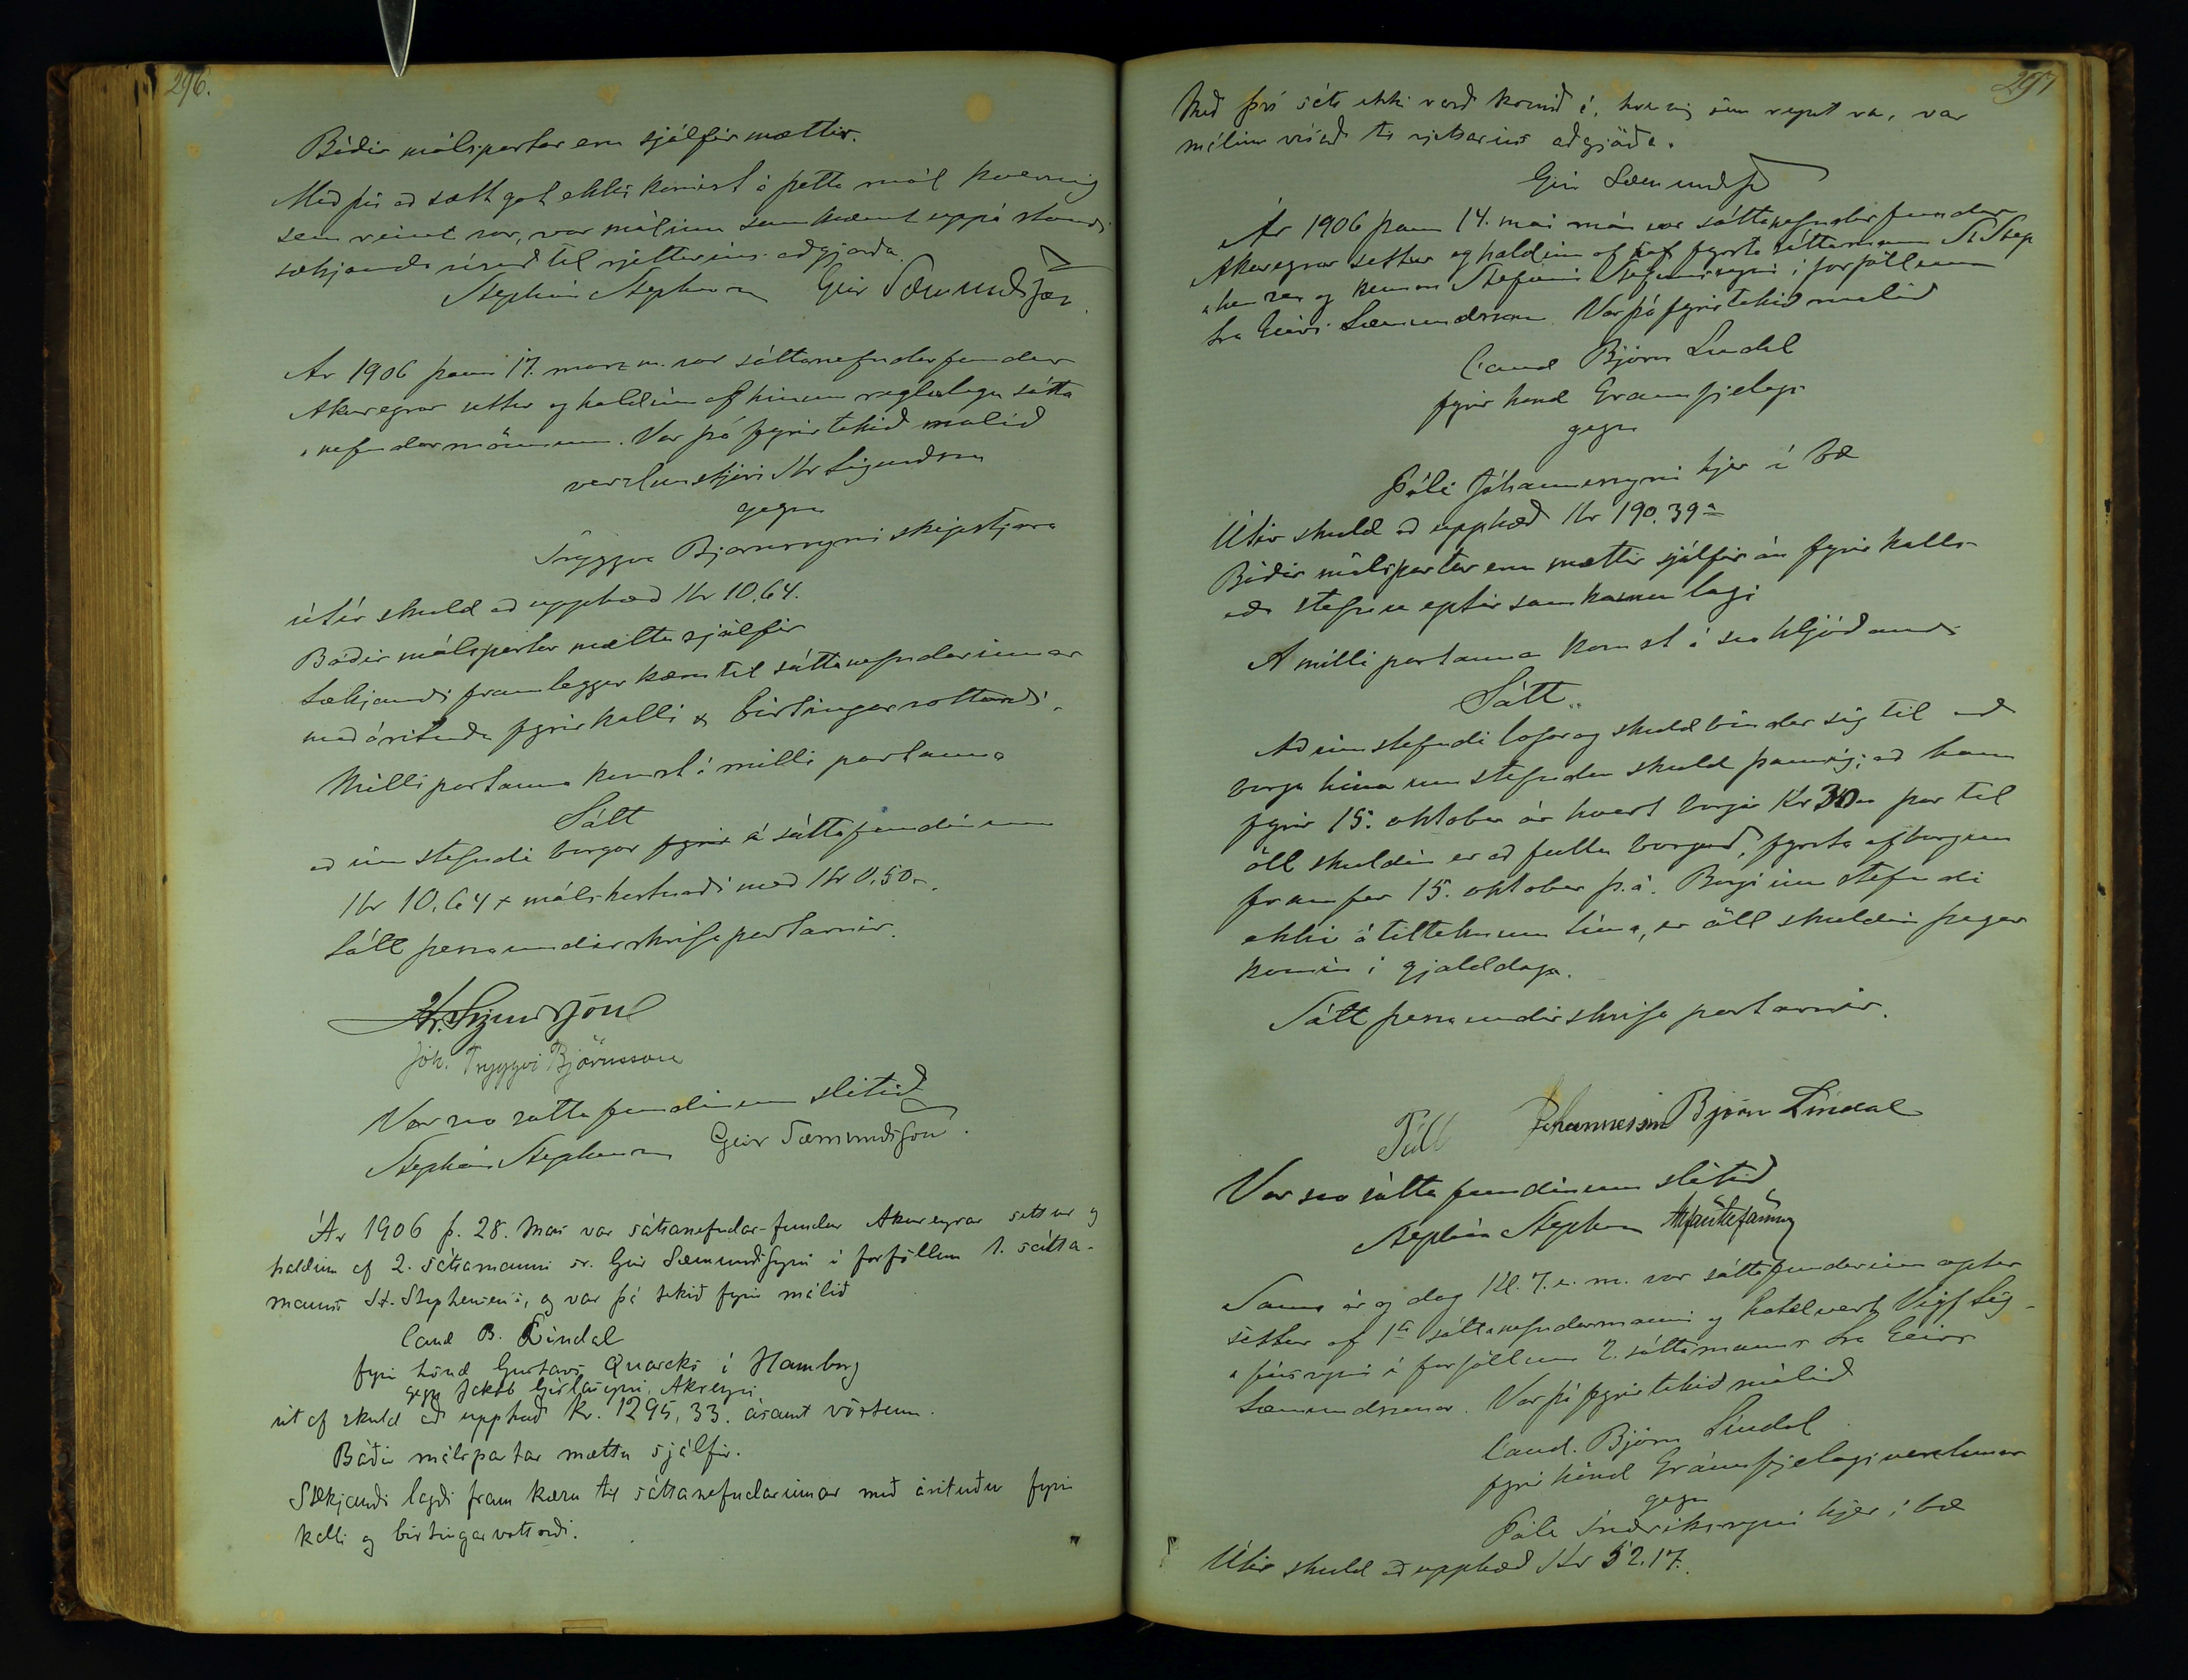 296.
Báðir málspartar eru sjálfir mættir.
Með því að sætt gat ekki komist á þetta mál hvernig
sem reint var, var málinu samkvæmt uppástandi
sækjanda vísað til rjettarins aðgjörða.
Stephán Stephensen Geir Sæmundsson
Ár 1906 þann 17. marz m. var sáttanefndarfundur
Akureyrar settur og haldinn af hinum reglulegu sátta
nefndarmönnum. Var þá fyrirtekið málið
verzlunarstjóri Kr Sigurðsson
gegn
Tryggva Björnssyni skipstjóra
útúr skuld að upphæð Kr 10.64.
Báðir málspartar mættu sjálfir
Sækjandi framleggur kæru til sáttanefndarinnar
með árituðu fyrirkalli & birtingarvottorði.
Milli partanna komst í milli partanna
Sátt
að innstefndi borgar fyrir á sáttafundinum
Kr 10.64 + málskostnaði með Kr 0.50.
Sátt þessa undirskrifa partarnir.
Kr. Sigurdsson
Jóh. Tryggvi Björnsson
Var svo sáttafundinum slitið
Stephán Stephensen Geir Sæmundsson.
Ár 1906 þ. 28. Mars var sáttanefndar-fundur Akureyrar settur og
haldinn af 2. sáttamanni sr. Geir Sæmundssyni í forföllum 1. sátta-
manns St. Stephensens, og var þá tekið fyrir málið
Cand B. Líndal
fyrir hönd Gustavs Quarcks í Hamborg
gegn Jakob Gíslasyni, Akreyri
út af skuld að upphæð Kr. 1295,33. ásamt vöxtum.
Báðir málspartar mættu sjálfir.
Sækjandi lagði fram kæru til sáttanefndarinnar með árituðu fyrir
kalli og birtingarvottorði.
297
Með því sátt ekki varð komið á, hvernig sem reynt var, var
málinu vísað til rjettarins aðgjörða.
Geir Sæmundss
Ár 1906 þann 14. mai mán var sáttanefndarfundur
Akureyrar settur og haldinn af fyrsta sáttamanni St Step
hensen og Stefáni Stefánssyni í forföllum
sra Geirs Sæmundssonar. Var þá fyrirtekið málið
Cand Björn Lindal
fyrir hönd Gránufjelags
gegn
Páli Jóhannessyni hjer í bæ
Útúr skuld að upphæð Kr 190.39 a
Báðir málspartar eru mættir sjálfir án fyrirkalls
eða stefnu eptir samkomulagi
Á milli partanna komst á svo hljóðandi
Sátt
Að innstefndi lofar og skuldbindur sig til að
borga hina umstefndu skuld þannig; að hann
fyrir 15. oktober ár hvert borgi Kr 30 þar til
öll skuldin er að fullu borguð, fyrsta afborgun
fram fer 15. oktober þ.á. Borgi innstefndi
ekki á tilteknum tíma, er öll skuldin þegar
komin í gjalddaga.
Sátt þessa undirskrifa partarnir.
Páll Jóhannesson Björn Líndal
Var svo sáttafundinum slitið
Stephán Stephensen
Sama ár og dag Kl. 7. e. m. var sáttafundurinn aptur
settur af 1ta sáttanefndarmanni og hotelvert Vigf Sig-
fússyni í forföllum 2. sáttamanns Sra Geirs
Sæmundssonar. Var þá fyrirtekið málið
Cand. Björn Líndal
fyrir hönd Gránufjelagsverzlunar
gegn
Páli Friðrikssyni hjer í bæ
Útúr skuld að upphæð Kr 52.17.